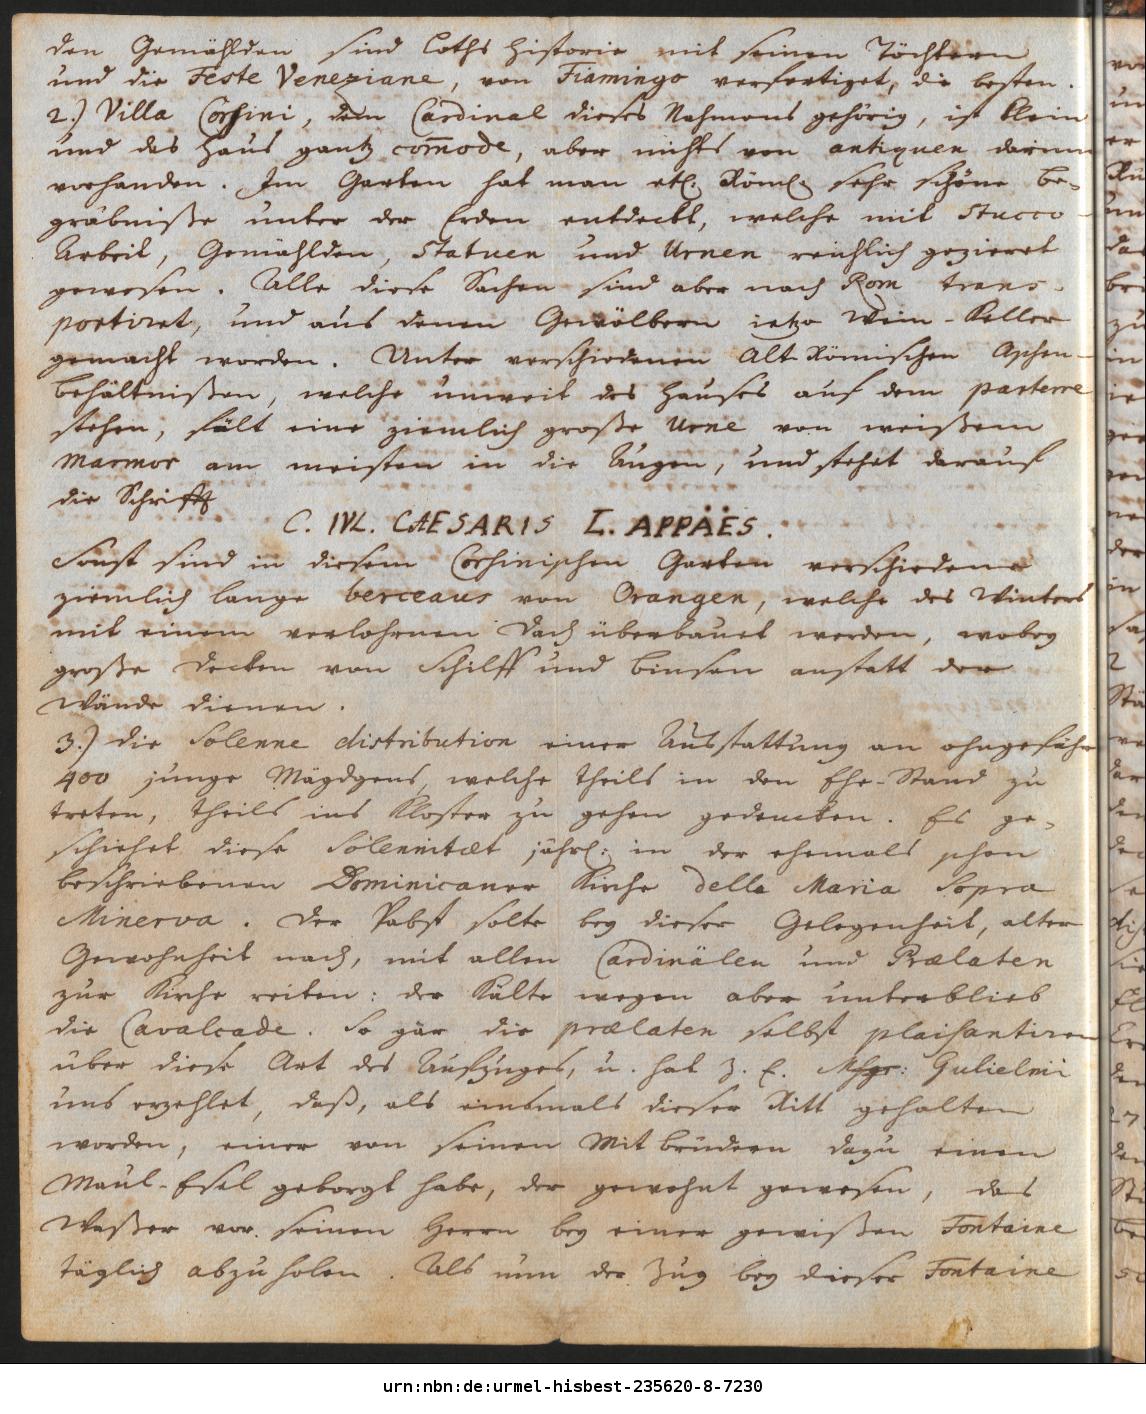 den Gemählden sind Loths Historie mit seinen Töchtern
und die Feste Veneziane, von Fiamingo verfertiget, die besten.
2.) Villa Corsini, dem Cardinal dieses Nahmens gehörig, ist klein
und das Hauß gantz com̅ode, aber nichts von antiquen darinn
vorhanden. Im Garten hat man etl. Röml. sehr schöne Be-
gräbniße unter der Erden entdeckt, welche mit Stucco-
Arbeit, Gemählden, Statuen und Urnen reichlich gezieret
gewesen. Alle diese Sachen sind aber nach Rom trans-
portiret, und aus denen Gewölbern ietzo Wein-Keller
gemacht worden. Unter verschiedenen Alt-Römischen Aschen-
behältnißen, welche unweit des Hauses auf dem parterre
stehen, fält eine ziemlich große Urne von weißem
Marmor am meisten in die Augen, und stehet darauf
die Schrifft
C. IVL. CAESARIS L. APPÄËS.
Sonst sind in diesem Corsinischen Garten verschiedene
ziemlich lange berceaus von Orangen, welche des Winters
mit einem verlohrnen Dach überbauet werden, wobey
große Decken von Schilff und Binsen anstatt der
Wände dienen.
3.) die Solenne distribution einer Ausstattung an ohngefähr
400 junge Mägdgens, welche theils in den Ehe-Stand zu
treten, theils ins Kloster zu gehen gedencken. Es ge-
schiehet diese Solennitæt jährl: in der ehemals schon
beschriebenen Dominicaner Kirche della Maria Sopra
Minerva. Der Pabst solte bey dieser Gelegenheit, alter
Gewohnheit nach, mit allen Cardinälen und Prælaten
zur Kirche reiten: der Kälte wegen aber unterblieb
die Cavalcade. So gar die prælaten selbst plaisantiren
über diese Art des Aufzuges, u. hat z. E. Msgr: Gulielmi
uns erzehlet, daß, als einsmals dieser Ritt gehalten
worden, einer von seinen Mitbrüdern dazu einen
Maul-Esel geborgt habe, der gewohnt gewesen, das
Waßer vor seinen Herrn bey einer gewißen Fontaine
täglich abzuholen. Als nun der Zug bey dieser Fontaine
urn:nbn:de:urmel-hisbest-235620-8-7230